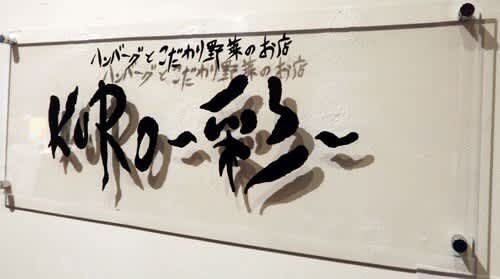 ハンバーグとこだわり野菜のお店
KuRo～彩～